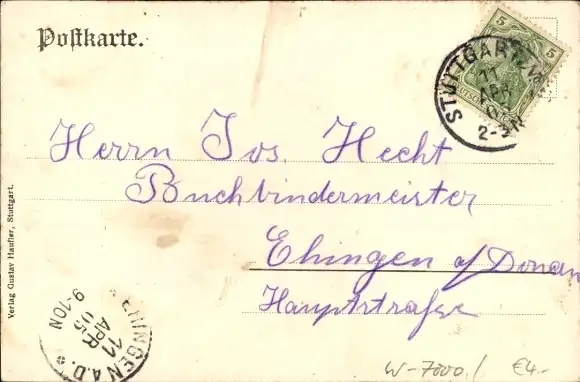 Postkarte.
5 5
STUTTGART
11
APR
2-3N
Herrn Jos. Hecht
Buchbindermeister
Ehingen a/Donau
Hauptstraße
Verlag Gustav Haufler, Stuttgart.
* EHINGEN A.D. *
11
APR
05
9-10N
W-7000./ €4.-